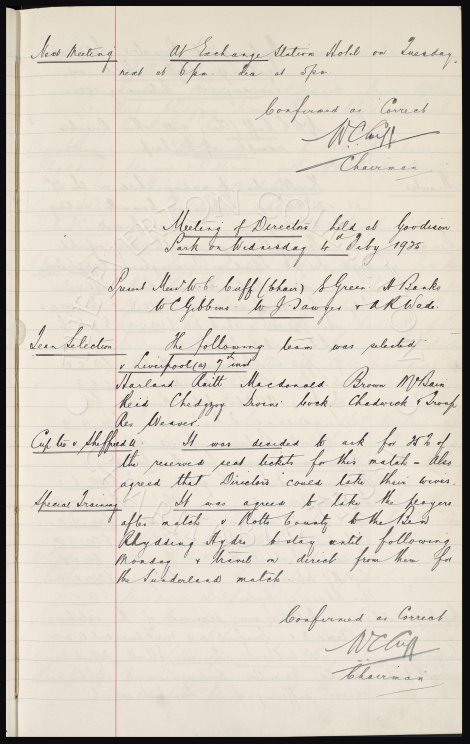 Next Meeting At Exchange Station Hotel on Tuesday
next at 6pm. Tea at 5pm.
Confirmed as Correct
W.C. Cuff
Chairman
Meeting of Directors held at Goodison
Park on Wednesday 4th Feby 1925
Present Messrs W.C. Cuff (Chair) S Green. A Banks
W C Gibbins. W J Sawyer & A R Wade.
Team Selection The following team was selected
v Liverpool (a) 7th inst
Harland Raitt Macdonald Brown McBain
Reid Chedgzoy Irvine Cock Chadwick & Troup
Res Weaver.
Cup tie v Sheffield U. It was decided to ask for 25% of
the reserved seat tickets for this match - also
agreed that Directors could take their wives.
Special Training It was agreed to take the players
after match v Notts County to the Ben
Rhydding Hydro to stay until following
Monday & travel on direct from there for
the Sunderland match.
Confirmed as Correct
W C Cuff
Chairman